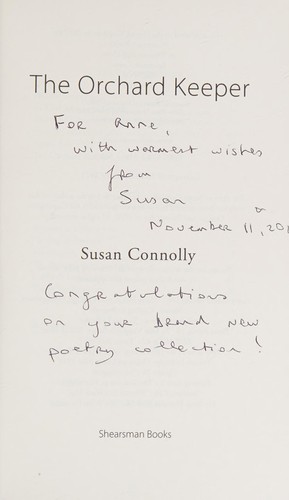 The Orchard Keeper
For Anne,
with warmest wishes
from
Susan
November 11, 201
Susan Connolly
Congratulations
on your brand new
poetry collection!
Shearsman Books